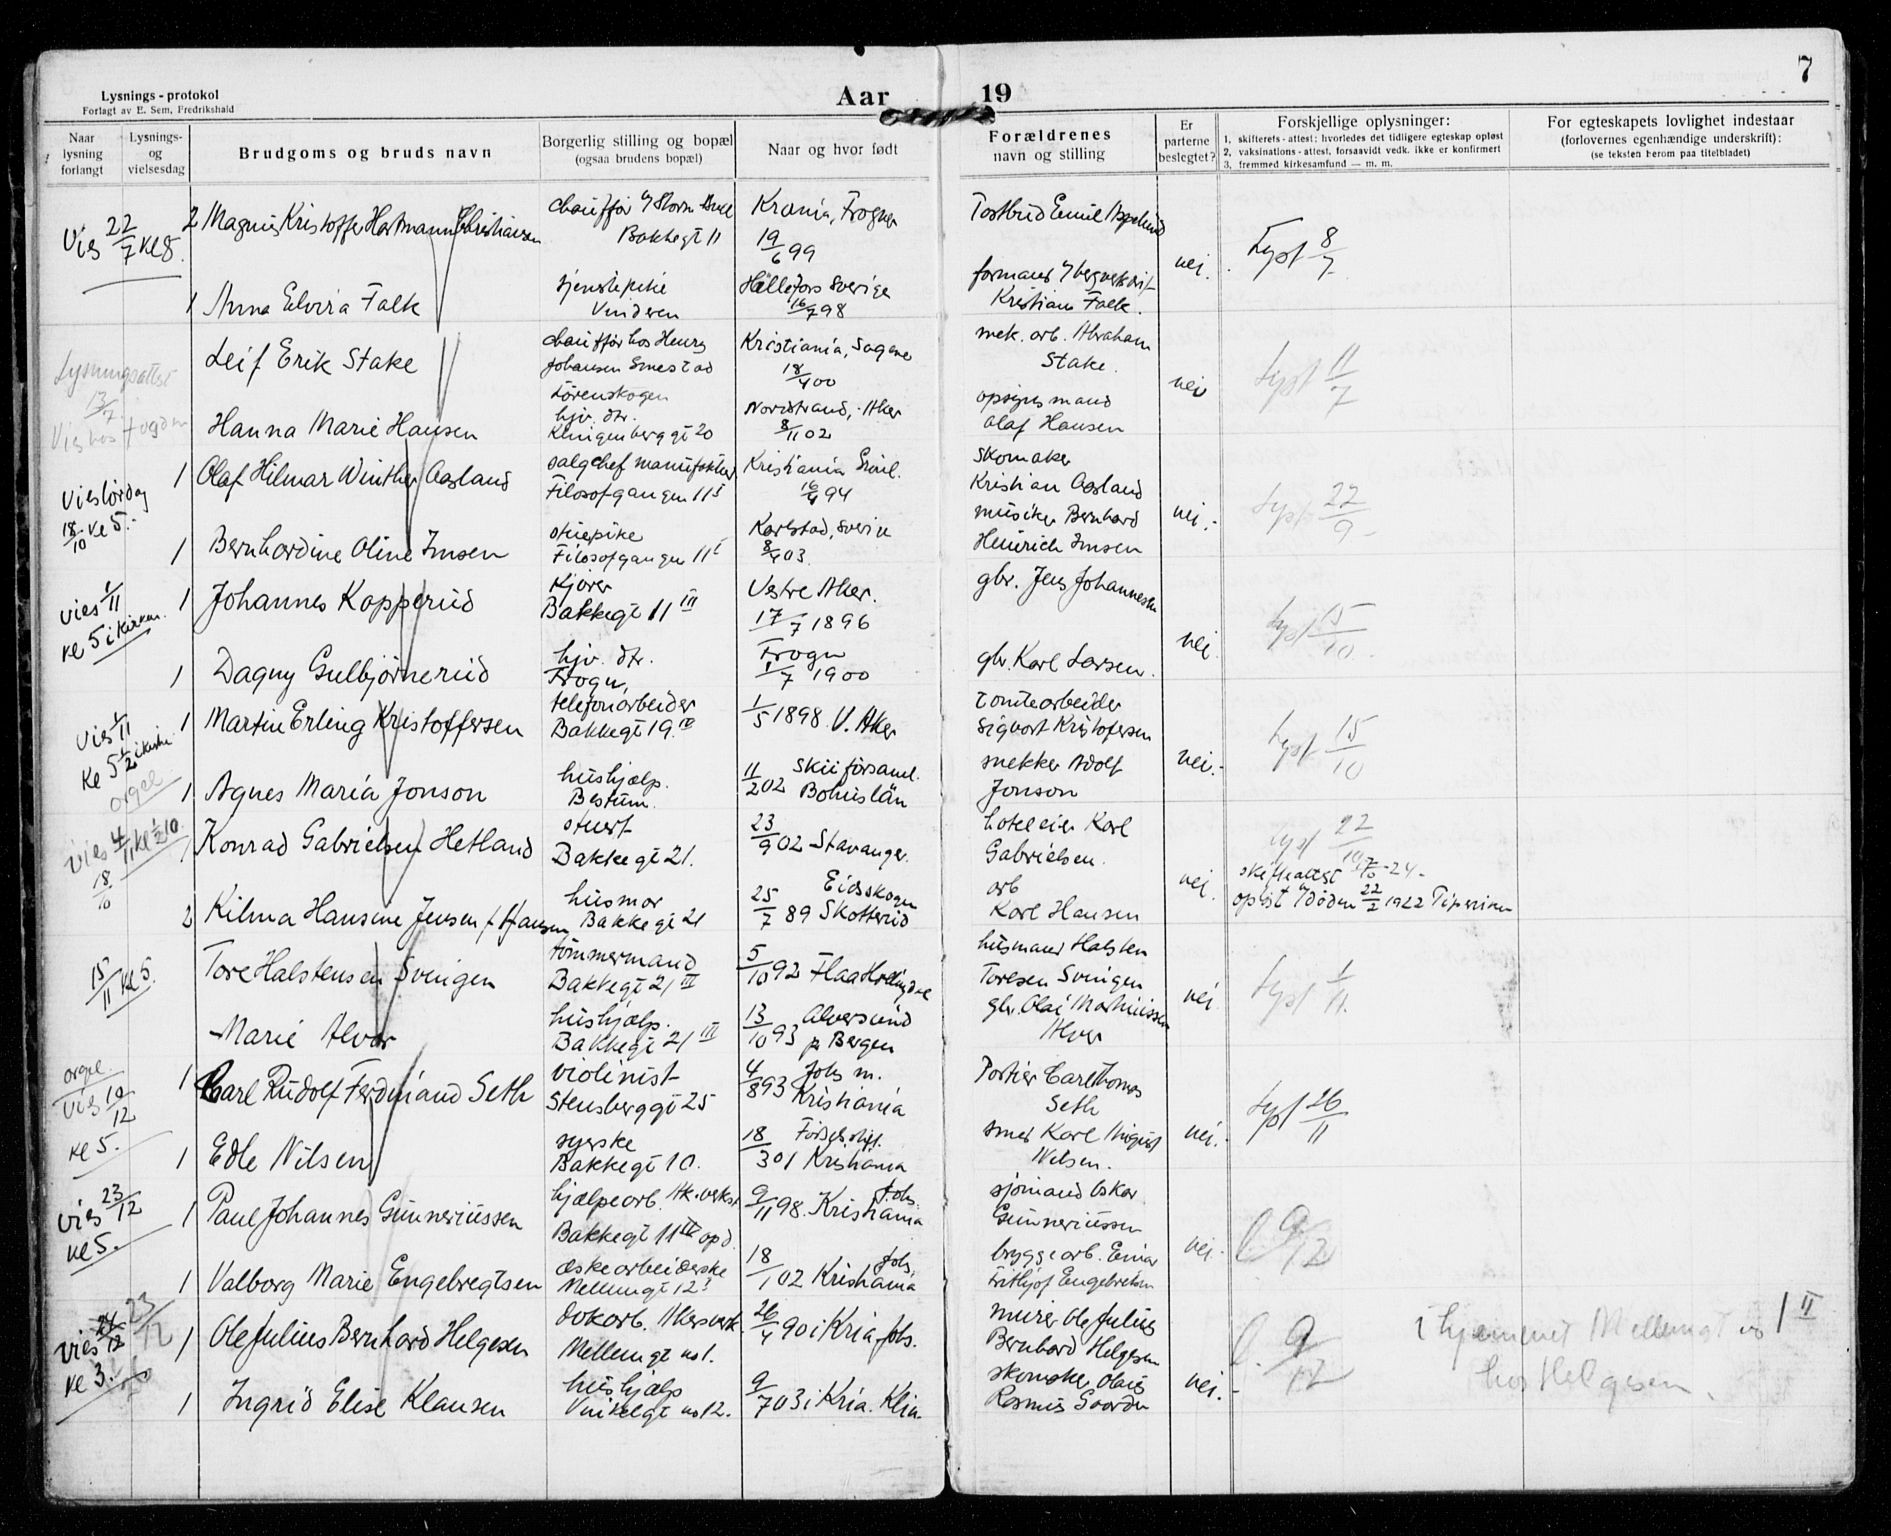 Lysnings-protokol
Forlagt av E. Sem, Fredrikshald
Aar
19
7
Naar lysning forlangt
Lysnings- og vielsesdag
Brudgoms og bruds navn
Borgerlig stilling og bopæl (ogsaa brudens bopæl)
Naar og hvor født
Forældrenes navn og stilling
Er parterne beslegtet?
Forskjellige oplysninger:
1. skifterets-attest: hvorledes det tidligere egteskap opløst
2. vaksinations-attest, forsaavidt vedk. ikke er konfirmert
3. fremmed kirkesamfund — m. m.
For egteskapets lovlighet indestaar
(forlovernes egenhændige underskrift):
(se teksten herom paa titelbladet)
Vies 22/7 kl 8.
2 Magnus Kristoffer Hartmann Christiansen
Bakkegt 11
Krania, Frogner
19/6 99
nei.
Lyst 8/7
1 Anna Elvira Falk
tjenstepike
Vinderen
Hällefors Sverige
16/7 98
Kristian Falk.
Lysningsattst 13/7
Vies hos fogden
Leif Erik Stake
chauffør hos Henry
Johansen Smestad
Kristiania, Sagene
18/4 00
mek. arb. Abraham
Stake.
nei
Lyst 11/7
Hanna Marie Hansen
Lørenskogen
hjv. dtr.
Klingenberggt 20
Nordstrand, Aker
8/11 02
opsynsmand
Olaf Hansen
Vies lørdag
18/10 kl 5.
1 Olaf Hilmar Winther Aasland
salgchef manufaktur
Filosofgangen 11 5
Kristiania
16/4 94
skomaker
Kristian Aasland
nei.
Lyst 22/9
1 Bernhardine Oline Imsen
stuepike
Filosofgangen 11
Karlstad, Sverige
8/4 03
musiker Bernhard
Heinrich Imsen
vies 1/11
kl 5 i kirken.
1 Johannes Kopperud
Kjører
Bakkegt 11 III
Vestre Aker.
17/7 1896
gbr. Jens Johannesen
nei.
Lyst 15/10
1 Dagny Gulbjørnerud
hjv. dtr.
Frogn,
Frogn
1/7 1900
gbr. Karl Larsen.
vies 1/11
kl 5 1/2 i kirke
orgel
1 Martin Erling Kristoffersen
telefonarbeider
Bakkegt 19 IV
1/5 1898 V. Aker
tomtearbeider
Sigvart Kristofersen
nei.
Lyst 15/10
1 Agnes Maria Jonson
hushjælp.
Bestum.
11/2 02 Skii församl.
Bohuslän
snekker Adolf
Jonson
vies 4/11 kl 1/2 10
18/10
1 Konrad Gabrielsen Hetland
stuert
Bakkegt 21.
23/9 02 Stavanger.
hoteleier Karl
Gabrielsen.
nei.
lyst 22/10
2 Kilma Hansine Jensen f. Hansen
husmor
Bakkegt 21
25/7 89 Eidsskogen
Skotterud
arb
Karl Hansen
opløst v/ døden 22/2 1922
15/11 kl 5.
Tore Halstensen Svingen
tømmermand
Bakkegt 21 III
5/10 92 Flaa Hallingdal
husmand Halsten
Toresen Svingen
nei.
Lyst 1/11
Marie Alver
hushjælp.
Bakkegt 21 III
13/10 93 Alversund
p Bergen
gbr. Olai Mathiassen
Alver
orgel.
Vies 10/12
kl 5.
1 Carl Rudolf Ferdinand Seth
violinist
Stensberggt 25
4/8 93 Joh m.
Kristiania
Portier Carl Thomas
Seth
nei.
Lyst 26/11
1 Edle Nilsen
syerske
Bakkegt 10.
18/3 01 Fødselsstif.
Kristiania
smed Karl August
Nilsen.
vies 23/12
kl 5.
1 Paul Johannes Gunneriussen
hjælpearb. Ak. verkst
Bakkegt 11 III opd.
9/11 98. Kristiania Joh.
sjømand Oskar
Gunneriussen
nei.
l 9/12
1 Valborg Marie Engebregtsen
æskearbeiderske
Mellumgt 12
18/1 02 Kristiania Joh.
bryggearb. Einar
Frithjof Engebretsen
vies 23/12
kl 3.
1 Ole Julius Bernhard Helgesen
dokarb. Akersverk.
Mellumgt no 1.
26/4 90 i Kria Joh.
murer Ole Julius
Bernhard Helgesen
nei.
l. 9/12
i hjemmet Mellumgt no 1 II
hos Helgesen.
1 Ingrid Elise Klausen
hushjælp
Vinkelgt no 12.
9/7 03 i Kria. Klin.
skomaker Olaus
Rasmus